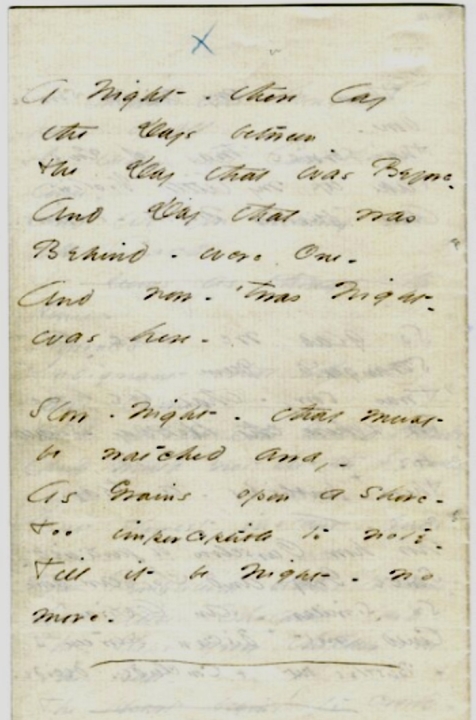 A Night - there lay
the Days between
The Day that was Before -
And Day that was
Behind - were One -
And now - 'twas Night -
was here -
Slow - Night - that must
be watched away -
As Grains upon a Shore -
Too imperceptible to note -
Till it be Night - no
more -